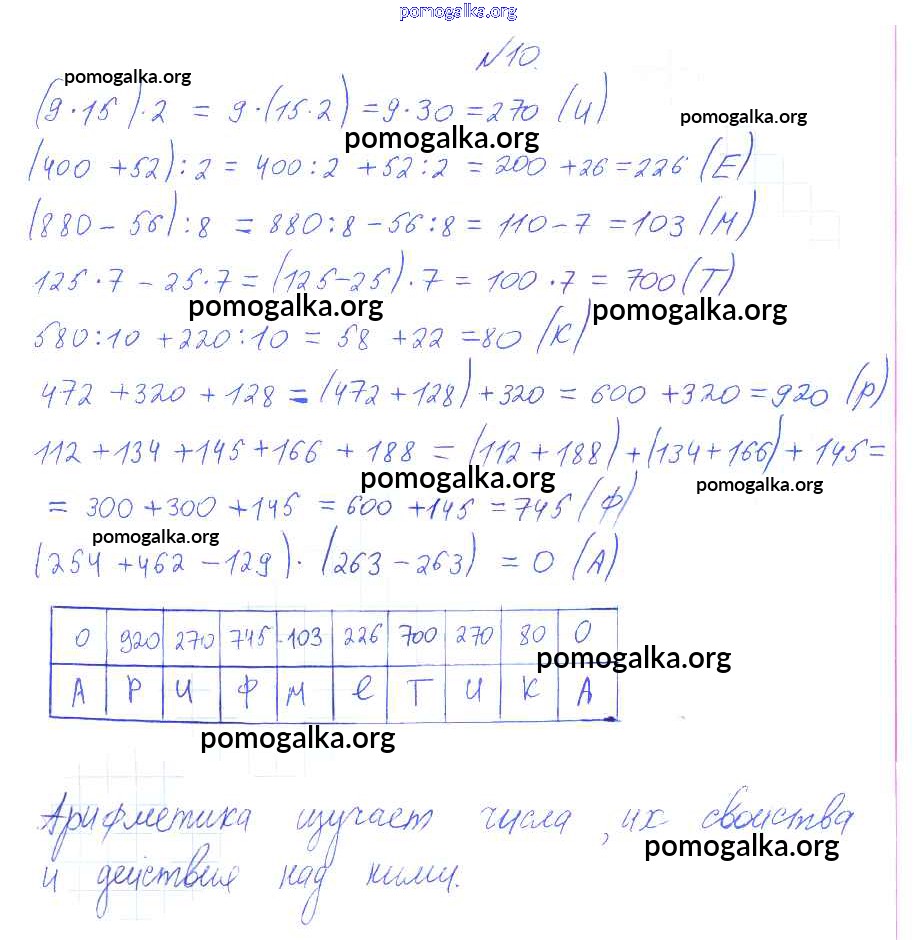 pomogalka.org
№10.
pomogalka.org
(9·15)·2 = 9·(15·2) = 9·30 = 270 (И)
pomogalka.org
pomogalka.org
(400 + 52) : 2 = 400 : 2 + 52 : 2 = 200 + 26 = 226 (Е)
(880 - 56) : 8 = 880 : 8 - 56 : 8 = 110 - 7 = 103 (М)
125 · 7 - 25 · 7 = (125-25) · 7 = 100 · 7 = 700 (Т)
pomogalka.org
pomogalka.org
580:10 + 220:10 = 58 + 22 = 80 (К)
472 + 320 + 128 = (472 + 128) + 320 = 600 + 320 = 920 (Р)
112 + 134 + 145 + 166 + 188 = (112 + 188) + (134 + 166) + 145 =
pomogalka.org
pomogalka.org
= 300 + 300 + 145 = 600 + 145 = 745 (Ф)
pomogalka.org
(254 + 462 - 129) · (263 - 263) = 0 (А)
0 920 270 745 103 226 700 270 80 0
pomogalka.org
А Р И Ф М Е Т И К А
pomogalka.org
Арифметика изучает числа, их свойства
pomogalka.org
и действия над ними.